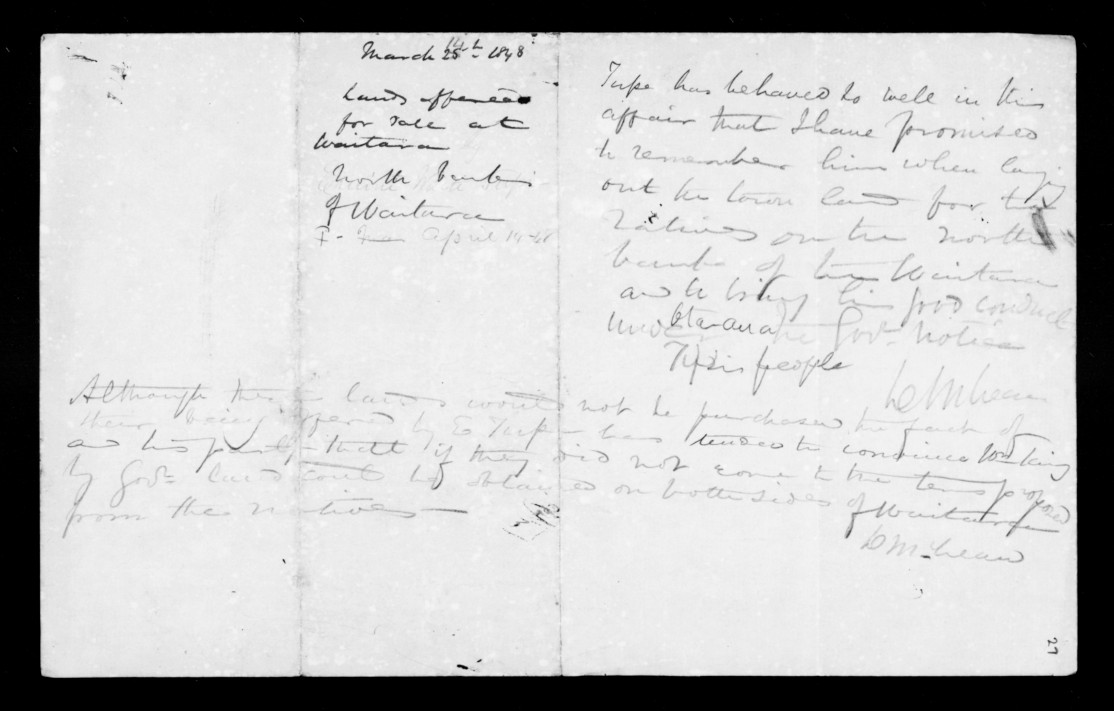 March 14th 1848
Lands offered
for sale at
Waitara
North banks
of Waitara
April 14 48
Tupe has behaved so well in this
affair that I have promised
to remember him when laying
out the town land for the
Natives on the North
banks of the Waitara
and to bring his good conduct
under the Govt. Notice
Otaraua
people
D McLean
Although these lands would not be purchased the fact of
their being offered by E Tupe has tended to convince Wm King
and his party that if they did not come to the terms proposed
by Govt. land could be obtained on both sides of Waitara
from the natives
D McLean
27